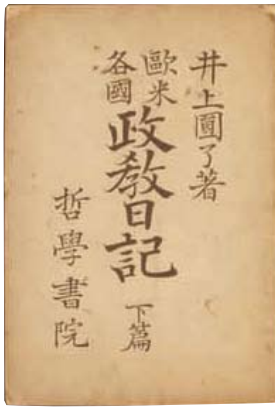 井上圓了著
歐米
各國
政教日記
下篇
哲學書院